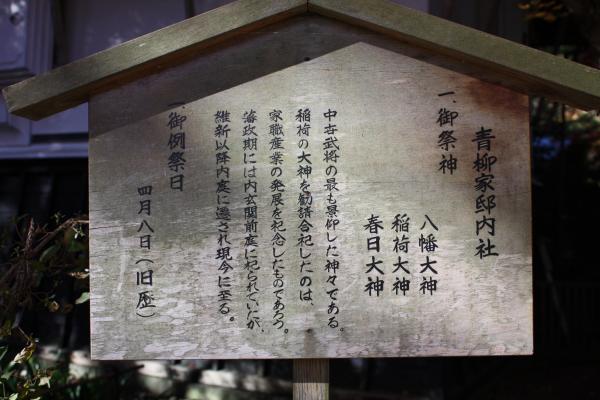 青柳家邸内社
一、御祭神
八幡大神
稲荷大神
春日大神
中古武将の最も景仰した神々である。
稲荷の大神を勧請合祀したのは、
家職産業の発展を祀念したものであろう。
藩政期には内玄関前庭に祀られていたが、
維新以降内庭に遷され現今に至る。
一、御例祭日
四月八日(旧歴)